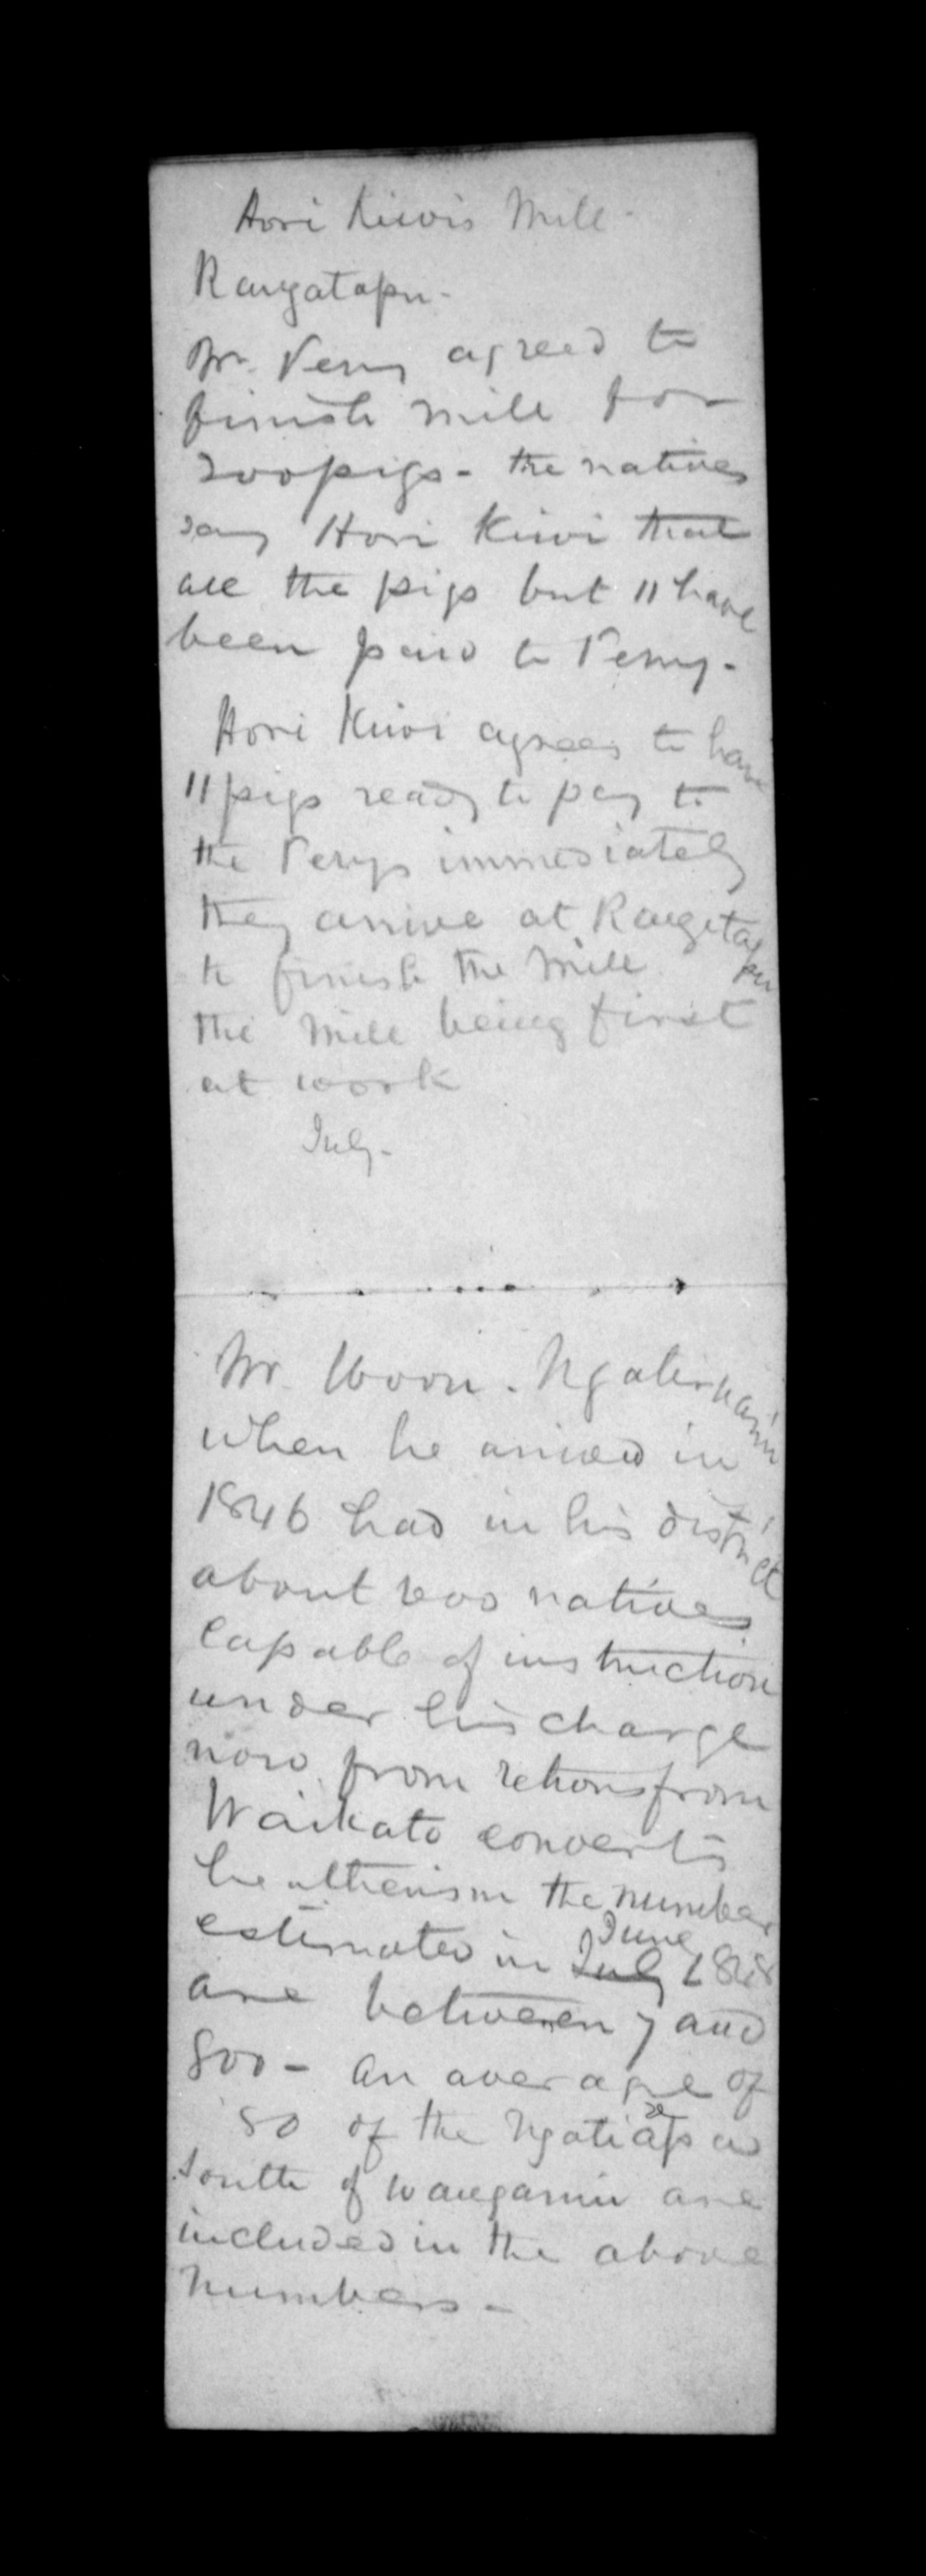 Hori Kiwis Mill -
Rangatapu -
Mr. Perry agreed to
finish mill for
200 pigs - the natives
say Hori Kiwi that
all the pigs but 11 have
been paid to Perry -
Hori Kiwi agrees to have
11 pigs ready to pay to
the Perrys immediately
they arrive at Rangatapu
to finish the Mill
the Mill being first
at work
July -
Mr. Woon - Ngatiruanui
when he arrived in
1846 had in his district
about 1200 natives
capable of instruction
under his charge
now from returns from
Waikato converts
heathenism the number
June
estimated in July 1848
are between 7 and
800 - an average of
80 of the Ngatiapa
south of Wanganui are
included in the above
numbers -